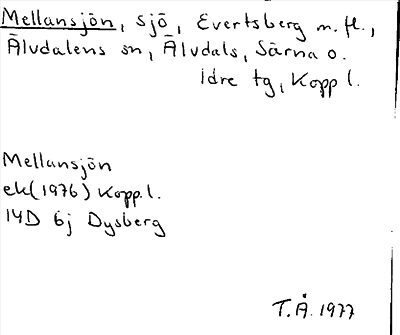 Mellansjön, sjö, Evertsberg m. fl.,
Älvdalens sn, Älvdals, Särna o.
Idre tg, Kopp l.
Mellansjön
ek (1976) Kopp. l.
14D 6j Dysberg
T.Å. 1977